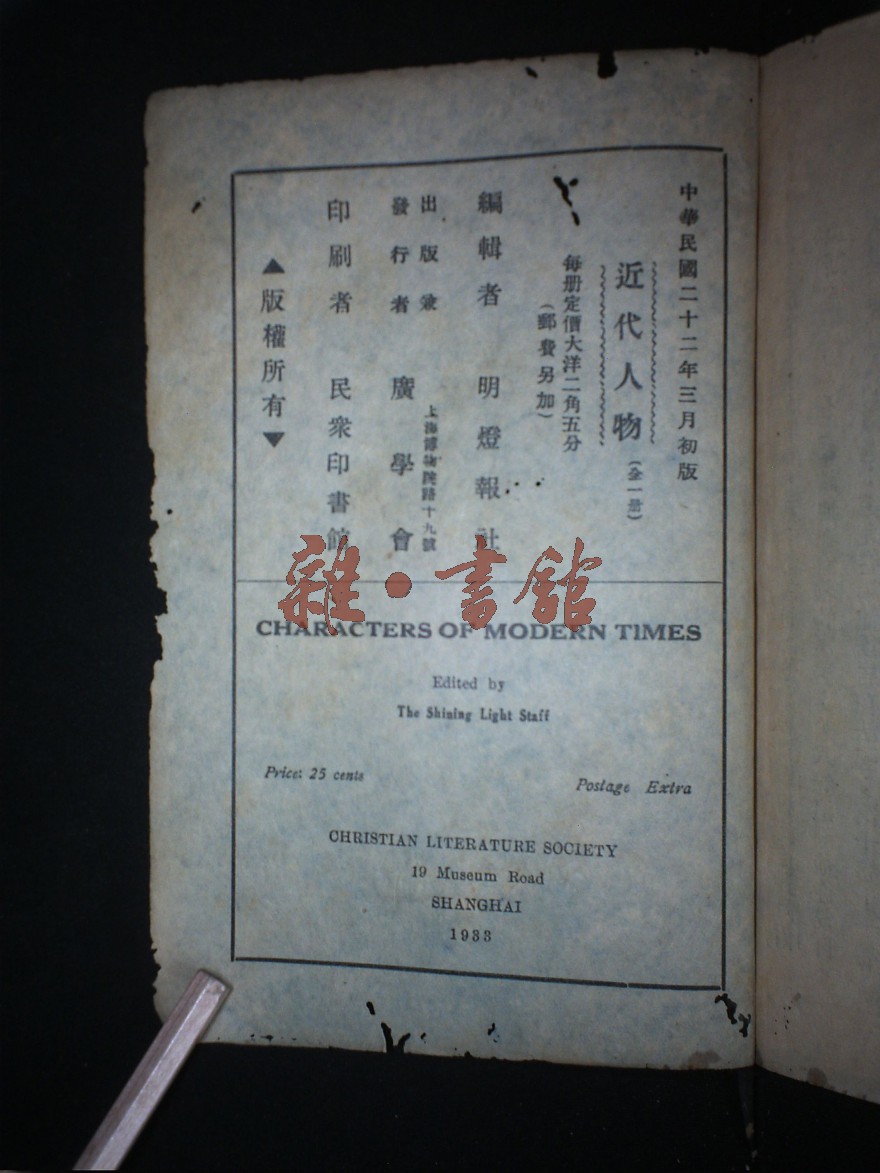 中華民國二十二年三月初版
近代人物(全一册)
每册定價大洋二角五分
(郵費另加)
編輯者 明燈報社
出版兼
發行者
上海博物院路十九號
廣學會
印刷者 民衆印書館
▲版權所有▼
雜·書館
CHARACTERS OF MODERN TIMES
Edited by
The Shining Light Staff
Price: 25 cents
Postage Extra
CHRISTIAN LITERATURE SOCIETY
19 Museum Road
SHANGHAI
1933